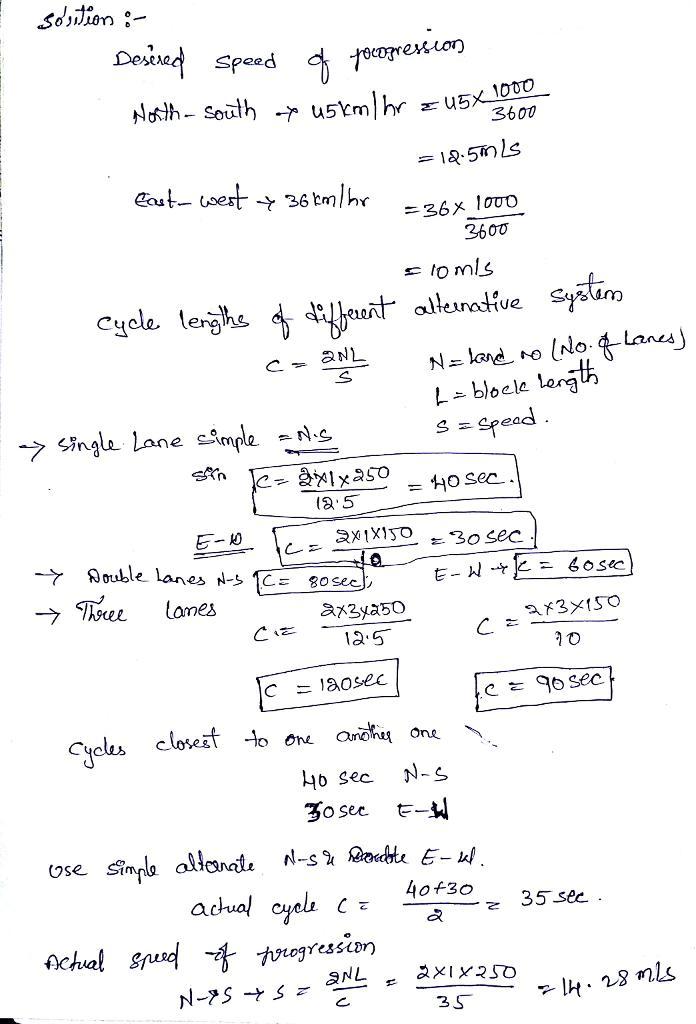 Solution :-
Desired speed of progression
North - south → 45km/hr = 45 × 1000/3600
= 12.5m/s
East - west → 36 km/hr = 36 × 1000/3600
= 10 m/s
Cycle lengths of different alternative system
C = 2NL/S N = land no (No. of Lanes)
L = block length
S = speed.
→ Single Lane simple = N-S
C = 2×1×250/12.5 = 40 sec.
E-W C = 2×1×150/10 = 30 sec.
→ Double Lanes N-S C = 80sec, E-W → C = 60sec
→ Three lanes C = 2×3×250/12.5 C = 2×3×150/10
C = 120sec C = 90sec
Cycles closest to one another one
40 sec N-S
30 sec E-W
Use simple alternate N-S & Double E-W.
actual cycle C = 40+30/2 = 35 sec.
Actual speed of progression
N→S → S = 2NL/C = 2×1×250/35 = 14.28 m/s